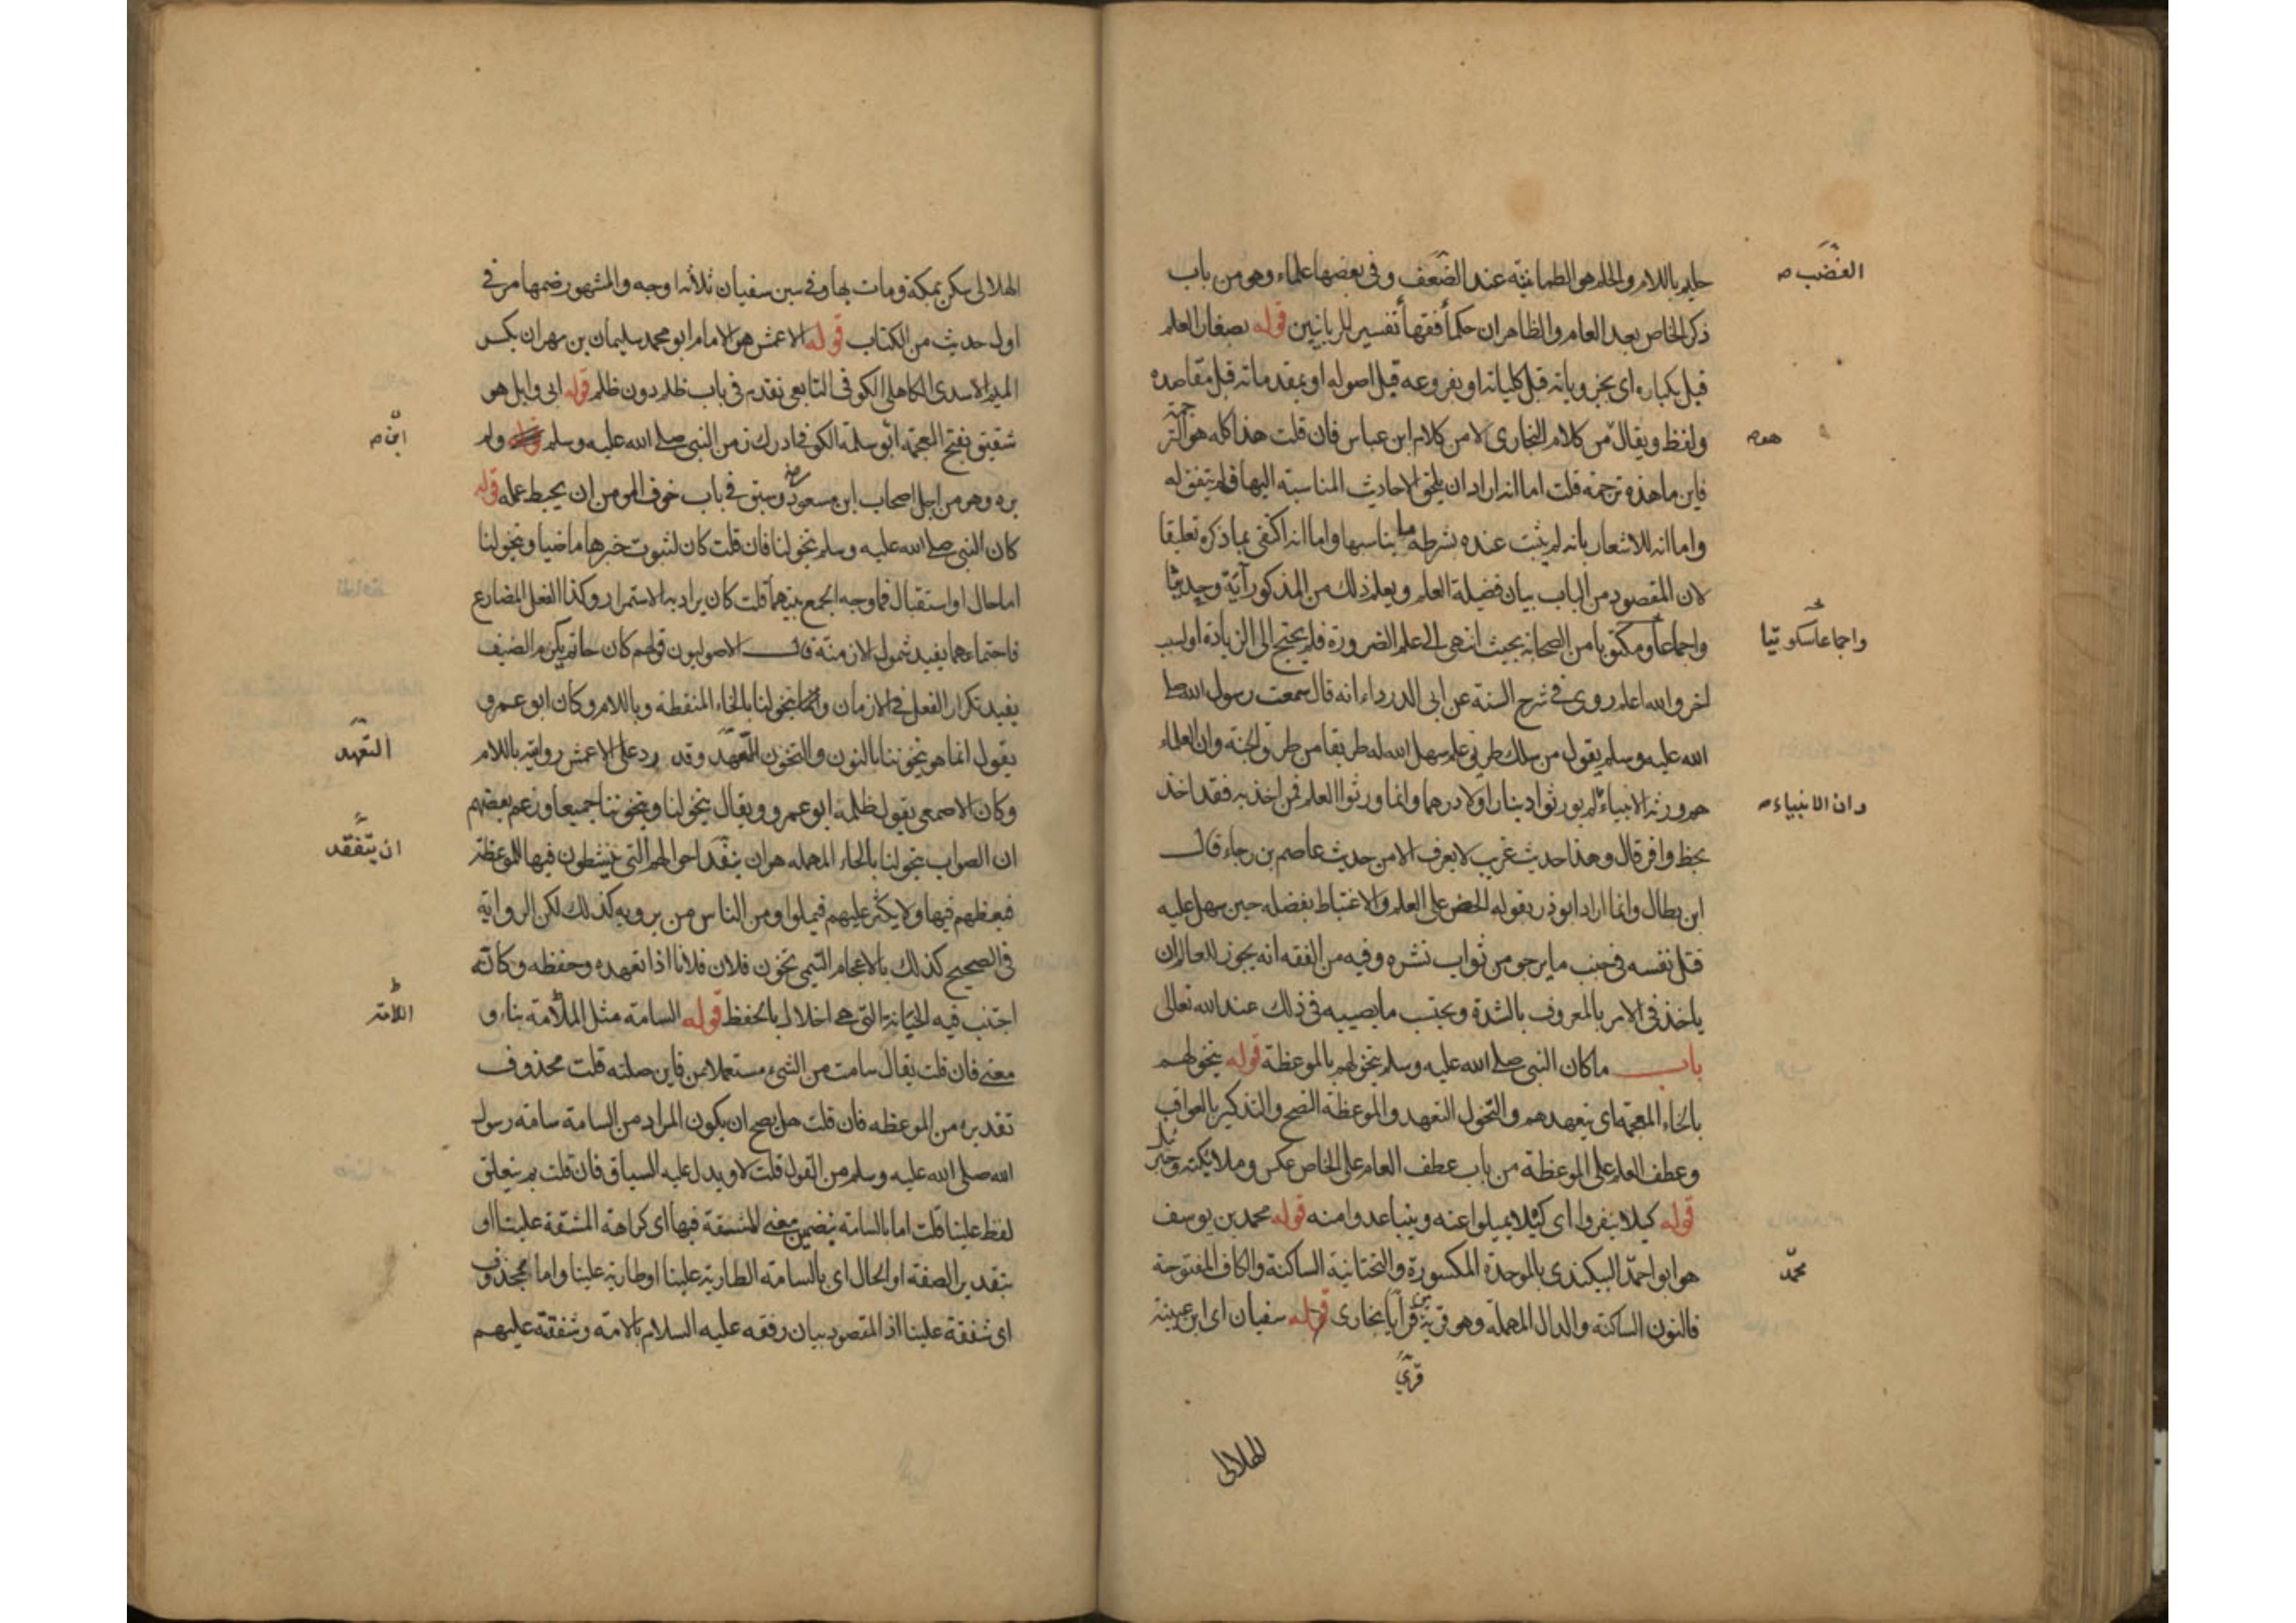 حليم باللام والحلم هو الطمانينة عند الضعف وفي بعضها علماء وهو من باب
الغضب صح
ذكر الخاص بعد العام والظاهر ان حكما فقها تفسير للربانيين قوله بصغار العلم
قبل بكباره اى بجزوياته قبل كلياته او بفروعه قبل اصوله او بمقدماته قبل مقاصده
ولفظ ويقال من كلام البخارى لا من كلام ابن عباس فان قلت هذا كله هو الترجمة
هو صح
فاين ما هذه ترجمة قلت اما انه اراد ان يلحق الاحاديث المناسبة اليها فلم يتفق له
واما انه للاشعار بانه لم يثبت عنده بشرطه ما يناسبها واما انه اكتفى بما ذكره تعليقا
لان المقصود من الباب بيان فضيلة العلم ويعلم ذلك من المذكور آية وحديثا
واجماعا ومكتوبا من الصحابة بحيث انتهى الى علم الضرورة فلم يحتج الى الزيادة او لسبب
واجماعا سكوتيا
اخر والله اعلم روى في شرح السنة عن ابى الدرداء انه قال سمعت رسول الله صلى
الله عليه وسلم يقول من سلك طريق علم سهل الله له طريقا من طرق الجنة وان العلماء
هم ورثة الانبياء لم يورثوا دينارا ولا درهما وانما ورثوا العلم فمن اخذ به فقد اخذ
وان الانبياء صح
بحظ وافر قال وهذا حديث غريب لا يعرف الا من حديث عاصم بن رجاء قال
ابن بطال وانما اراد ابو ذر بقوله الحض على العلم والاغتباط بفضله حين سهل عليه
قتل نفسه في جنب ما يرجو من ثواب نشره وفيه من الفقه انه يجوز للعالم ان
ياخذ في الامر بالمعروف بالشدة ويحتسب ما يصيبه في ذلك عند الله تعالى
باب ما كان النبى صلى الله عليه وسلم يتخولهم بالموعظة قوله يتخولهم
بالخاء المعجمة اى يتعهدهم والتخول التعهد والموعظة النصح والتذكير بالعواقب
وعطف العلم على الموعظة من باب عطف العام على الخاص عكس وملائكته وجبريل
قوله كيلا ينفروا اى كيلا يميلوا عنه ويتباعدوا منه قوله محمد بن يوسف
هو ابو احمد البيكندى بالموحدة المكسورة والتحتانية الساكنة والكاف المفتوحة
محمد
فالنون الساكنة والدال المهملة وهو قرية من قرايا بخارى قوله سفيان اى ابن عيينة
قرى
الهلالى
الهلالى سكن بمكة ومات بها وفي سين سفيان ثلاثة اوجه والمشهور ضمها مر في
اول حديث من الكتاب قوله الاعمش هو الامام ابو محمد سليمان بن مهران بكسر
الميم الاسدى الكاهلى الكوفى التابعى تقدم في باب ظلم دون ظلم قوله ابى وايل هو
شقيق بفتح المعجمة ابو سلمة الكوفى ادرك زمن النبى صلى الله عليه وسلم ولم
ابن صح
يره وهو من اجل اصحاب ابن مسعود رضه وسبق في باب خوف المومن ان يحبط عمله قوله
كان النبى صلى الله عليه وسلم يتخولنا فان قلت كان لثبوت خبرها ماضيا ويتخولنا
اما حال او استقبال فما وجه الجمع بينهما قلت كان يراد به الاستمرار وكذا الفعل المضارع
فاجتماعهما يفيد شمول الازمنة قال الاصوليون قولهم كان حاتم يكرم الضيف
يفيد تكرار الفعل في الازمان وانما يتخولنا بالخاء المنقطة وباللام وكان ابو عمرو
يقول انما هو يتخوننا بالنون والتخون التعهد وقد رد على الاعمش روايته باللام
التعهد
وكان الاصمعى يقول ظلمه ابو عمرو ويقال يتخولنا ويتخوننا جميعا وزعم بعضهم
ان الصواب يتحولنا بالحاء المهمله هو ان يتفقد احوالهم التى ينشطون فيها للموعظة
ان يتفقد
فيعظهم فيها ولا يكثر عليهم فيملوا ومن الناس من يرويه كذلك لكن الرواية
في الصحيح كذلك بالاعجام التيمى تخون فلان فلانا اذا تعهده وحفظه وكانه
اجتنب فيه الخيانة التى هى اخلال بالحفظ قوله السامة مثل الملامة بناء و
معنى فان قلت يقال سامت من الشىء مستعملا بمن فاين صلته قلت محذوف
تقديره من الموعظه فان قلت هل يصح ان يكون المراد من السامة سامة رسول
الله صلى الله عليه وسلم من القول قلت لا ويدل عليه السياق فان قلت بم يتعلق
لفظ علينا قلت اما بالسامة بتضمين معنى المشقة فيها اى كراهة المشقة علينا او
بتقدير الصفة او الحال اى بالسامة الطارية علينا او طارية علينا واما بمحذوف
اى شفقة علينا اذ المقصود بيان رفقه عليه السلام بالامة وشفقته عليهم